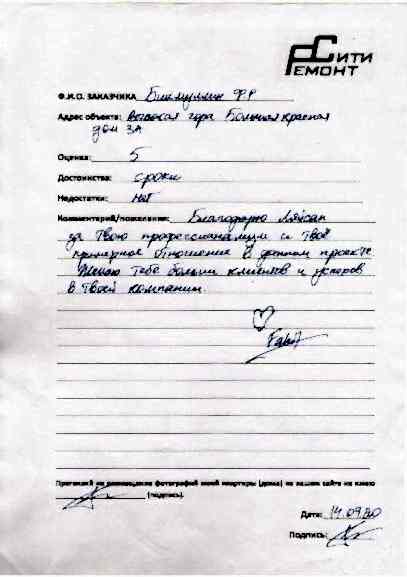 Сити
Ремонт
Ф.И.О. ЗАКАЗЧИКА Бикмуллин Ф Р
Адрес объекта: Высокая гора Большая красная
дом 3А
Оценка: 5
Достоинства: сроки
Недостатки: нет
Комментарий/пожелания: Благодарю Ляйсан
за Твою профессионализм и Твоё
примерное отношение в данном проекте
Желаю тебе больших клиентов и успехов
в Твоей компании
Претензий на размещение фотографий моей квартиры (дома) на вашем сайте не имею
(подпись).
Дата: 14.09.20
Подпись: